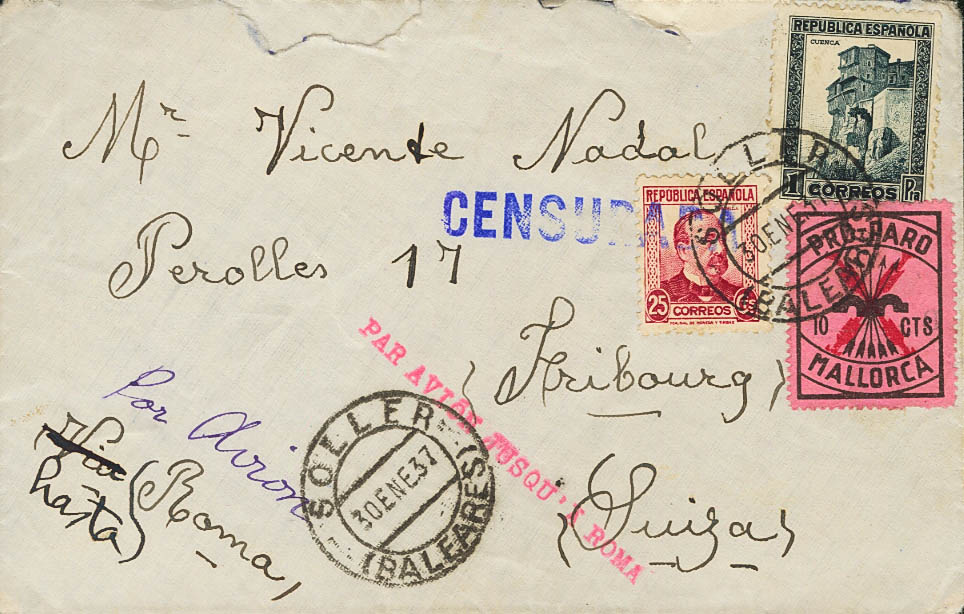 Mr Vicente Nadal
Perolles 17
(Fribourg)
(Suiza)
Por Avion
Via
hasta
(Roma)
CENSURADA
PAR AVION JUSQU'A ROMA
REPUBLICA ESPAÑOLA
CUENCA
1 CORREOS Pta
REPUBLICA ESPAÑOLA
25 CORREOS Cts
PRO-PARO
10 CTS
MALLORCA
SOLLER
30 ENE 37
(BALEARES)
SOLLER
30 ENE 37
(BALEARES)